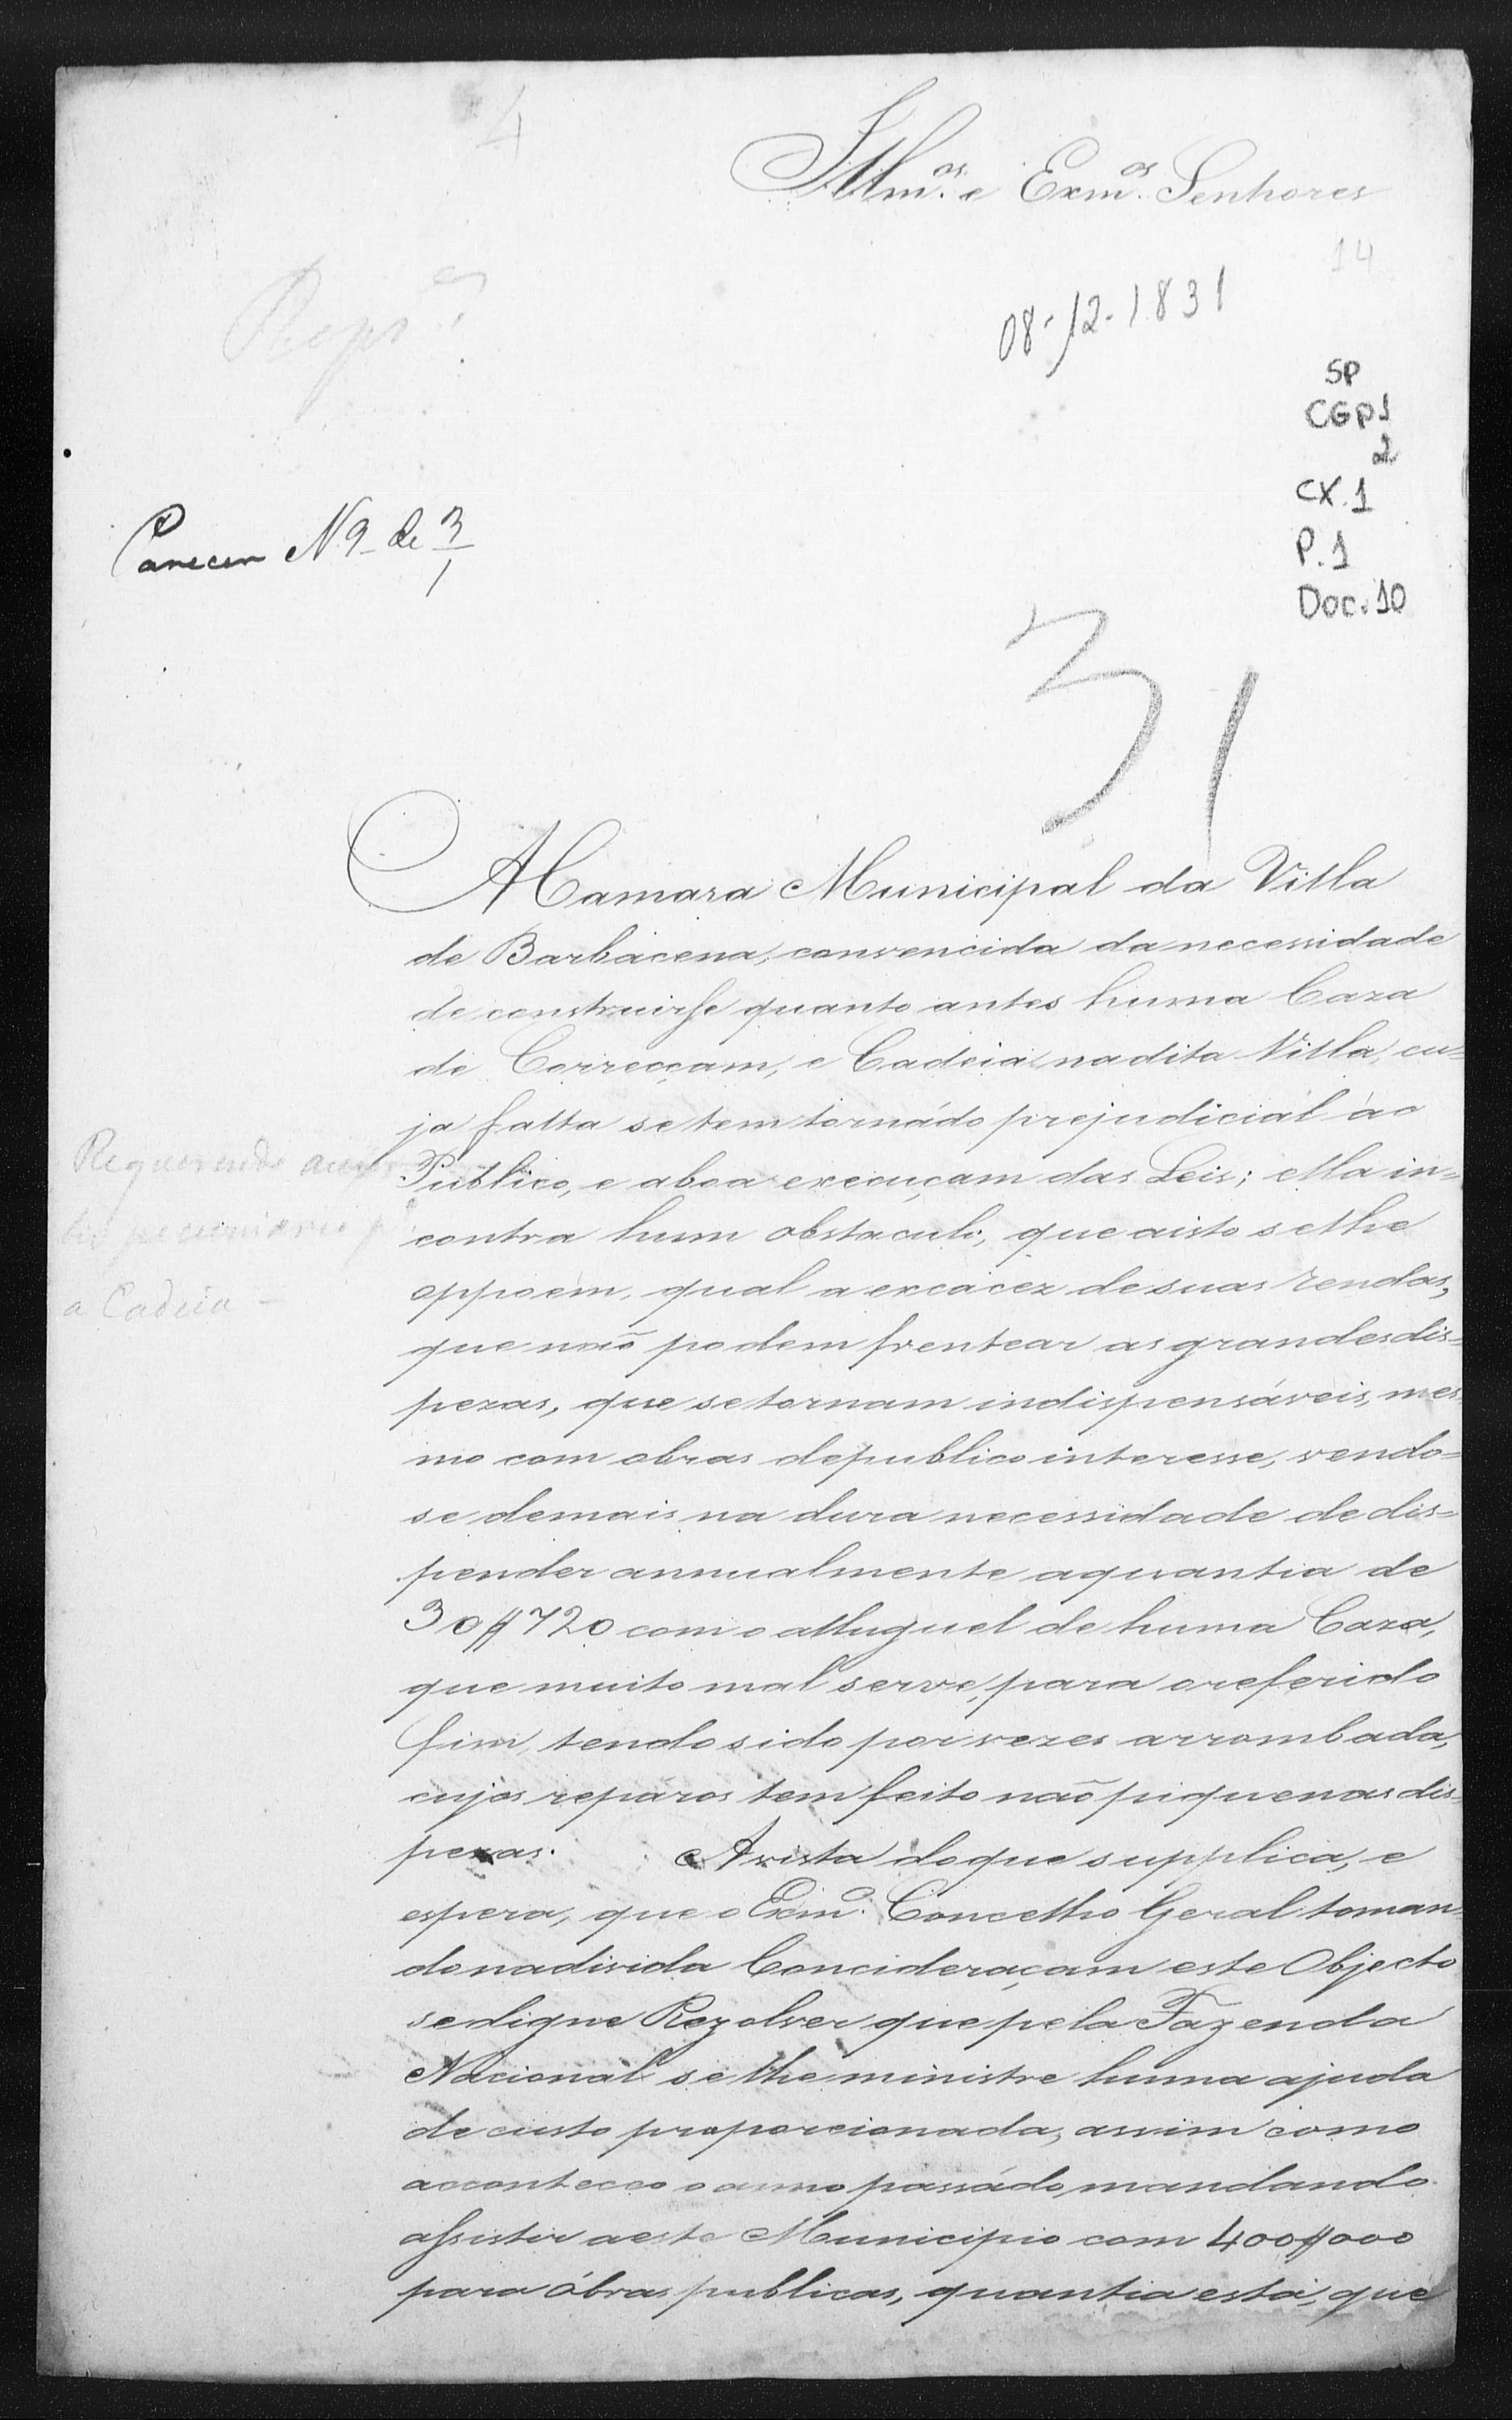 4
Illm.os e Exm.os Senhores
14
08-12-1831
SP
CGP1
2
CX.1
P.1
Doc.10
Parecer N 9 de 3/1
31
A Camara Municipal da Villa
de Barbacena, convencida da necessidade
de construirse quanto antes huma Caza
de Correcçam, e Cadeia na dita Villa, cu=
ja falta se tem tornádo prejudicial ao
Publico, e aboa execuçam das Leis; ella in=
contra hum obstaculo, que aisto selhe
oppoem, qual a excacez desuas rendas,
que naõ podem frentear as grandes dis=
pezas, que se tornam indispensáveis, mes
mo com obras depublico interesse, vendo=
se demais na dura necessidade de dis=
pender annualmente aquantia de
30$720 com o alluguel de huma Caza,
que muito mal serve, para oreferido
fim, tendo sido por vezes arrombada,
cujos reparos tem feito naõ piquenas dis
pezas. Avista doque supplica, e
espera, que o Exm.o Concelho Geral toman
do nadivida Concideraçam este Objecto
sedigne Rezolver que pela Fazenda
Nacional selhe ministre huma ajuda
de custo proporcionada, assim como
acconteceo o anno passádo, mandando
assistir aeste Municipio com 400$000
para óbras publicas, quantia esta, que
Requerendo auxi
lio pecuniario p.a
a Cadeia -